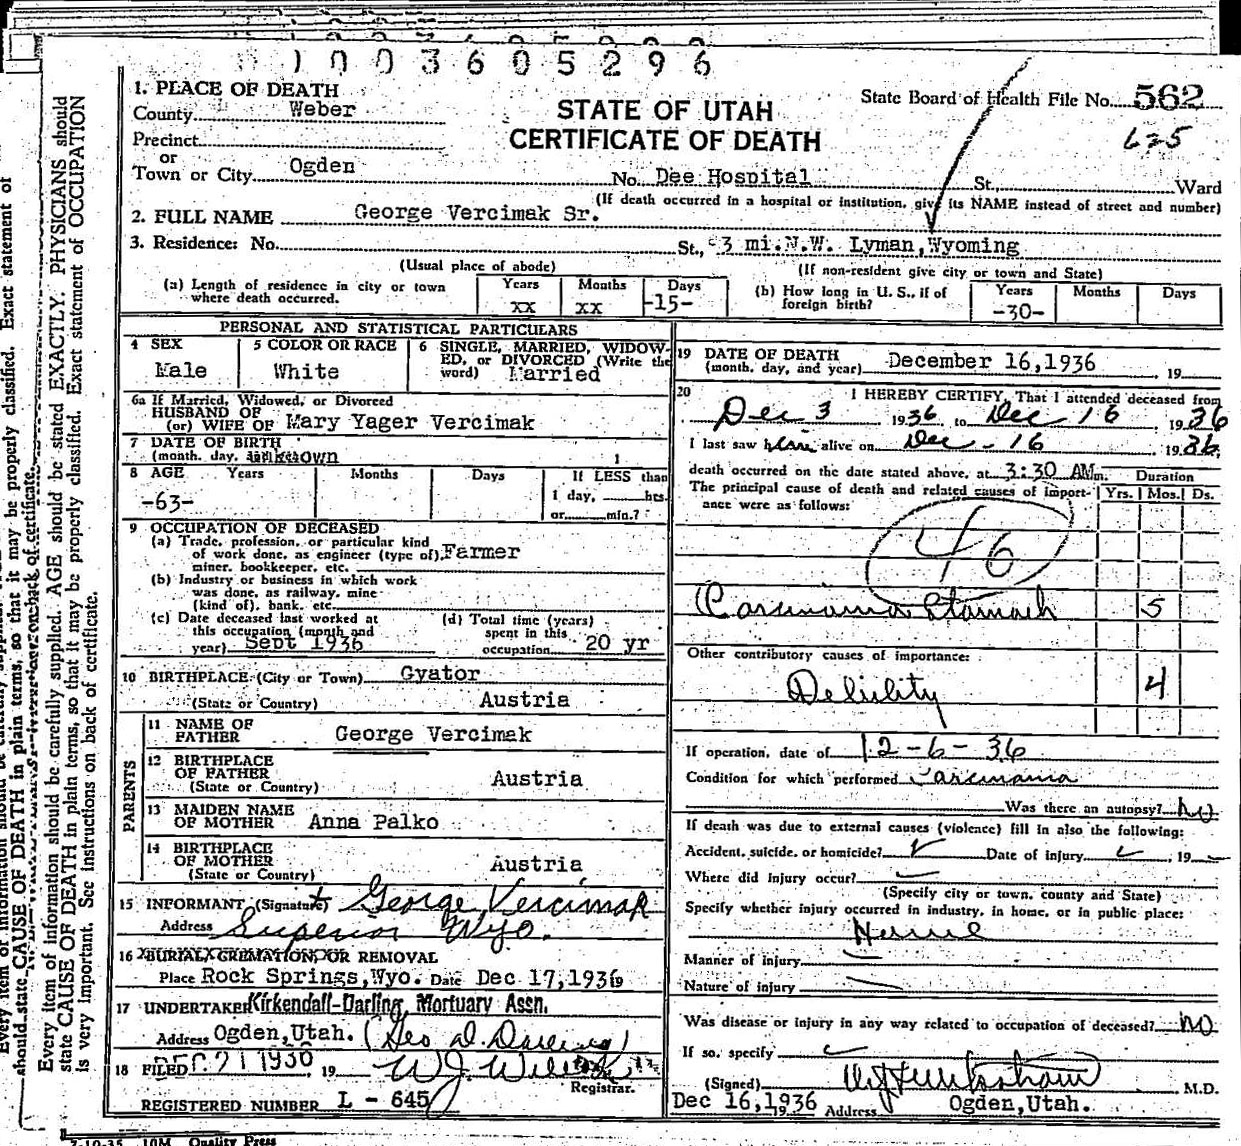 1003605296
1. PLACE OF DEATH
County Weber
STATE OF UTAH
State Board of Health File No. 562
Precinct
CERTIFICATE OF DEATH
625
or
Town or City Ogden No. Dee Hospital St., Ward
(If death occurred in a hospital or institution, give its NAME instead of street and number)
2. FULL NAME George Vercimak Sr.
3. Residence: No. St., 3 mi.N.W. Lyman,Wyoming
(Usual place of abode) (If non-resident give city or town and State)
(a) Length of residence in city or town where death occurred. Years xx Months xx Days -15-
(b) How long in U. S., if of foreign birth? Years -30- Months Days
PERSONAL AND STATISTICAL PARTICULARS
4 SEX Male
5 COLOR OR RACE White
6 SINGLE, MARRIED, WIDOWED, or DIVORCED (Write the word) Married
6a If Married, Widowed, or Divorced
HUSBAND OF
(or) WIFE OF Mary Yager Vercimak
7 DATE OF BIRTH
(month, day, unknown
8 AGE Years Months Days If LESS than
-63- 1 day, hrs.
or min.?
9 OCCUPATION OF DECEASED
(a) Trade, profession, or particular kind
of work done, as engineer (type of), Farmer
miner, bookkeeper, etc.
(b) Industry or business in which work
was done, as railway, mine
(kind of), bank, etc.
(c) Date deceased last worked at
this occupation (month and
year) Sept 1936
(d) Total time (years)
spent in this
occupation 20 yr
10 BIRTHPLACE (City or Town) Gyator
(State or Country) Austria
PARENTS
11 NAME OF
FATHER George Vercimak
12 BIRTHPLACE
OF FATHER Austria
(State or Country)
13 MAIDEN NAME
OF MOTHER Anna Palko
14 BIRTHPLACE
OF MOTHER
(State or Country) Austria
15 INFORMANT (Signature) George Vercimak
Address Superior Wyo.
16 BURIAL, CREMATION, OR REMOVAL
Place Rock Springs,Wyo. Date Dec 17,1936
17 UNDERTAKER Kirkendall-Darling Mortuary Assn.
Address Ogden,Utah. (Geo D. Darling)
18 FILED DEC 21 1936, 19
Registrar.
REGISTERED NUMBER L - 645
19 DATE OF DEATH
(month, day, and year) December 16,1936, 19
20 I HEREBY CERTIFY, That I attended deceased from
Dec 3 1936, to Dec 16, 1936
I last saw him alive on Dec - 16 1936,
death occurred on the date stated above, at 3:30 AM m.
The principal cause of death and related causes of importance were as follows:
Duration
Yrs. Mos. Ds.
46
Carcinoma Stomach 5
Other contributory causes of importance:
Debility 4
If operation, date of 12-6-36
Condition for which performed Carcinoma
Was there an autopsy? No
If death was due to external causes (violence) fill in also the following:
Accident, suicide, or homicide? Date of injury , 19
Where did injury occur?
(Specify city or town, county and State)
Specify whether injury occurred in industry, in home, or in public place:
Manner of injury
Nature of injury
Was disease or injury in any way related to occupation of deceased? No
If so, specify
(Signed) M.D.
Dec 16,1936 Address Ogden,Utah.
Every item of information should be carefully supplied. AGE should be stated EXACTLY. PHYSICIANS should
state CAUSE OF DEATH in plain terms, so that it may be properly classified. Exact statement of OCCUPATION
is very important. See instructions on back of certificate.
7-10-35 10M Quality Press